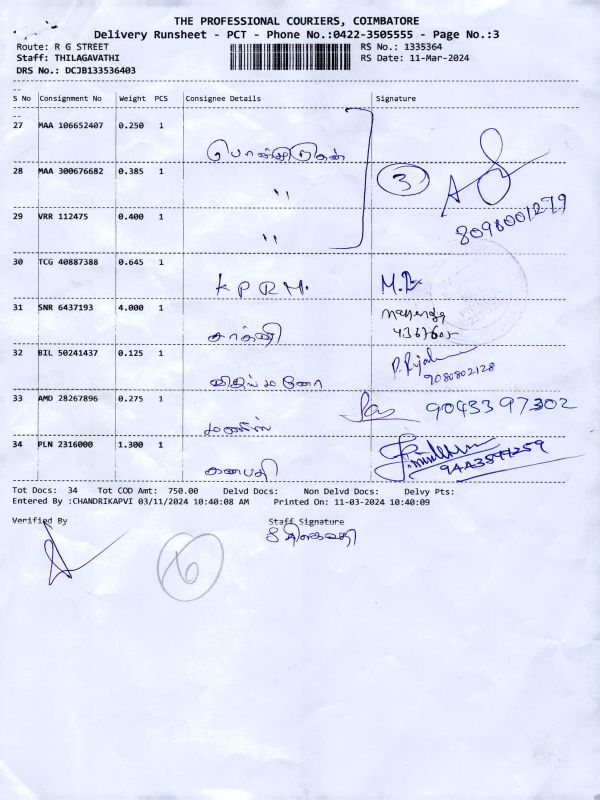 THE PROFESSIONAL COURIERS, COIMBATORE
Delivery Runsheet - PCT - Phone No.:0422-3505555 - Page No.:3
Route: R G STREET RS No.: 1335364
Staff: THILAGAVATHI RS Date: 11-Mar-2024
DRS No.: DCJB133536403
S No Consignment No Weight PCS Consignee Details Signature
27 MAA 106652407 0.250 1
28 MAA 300676682 0.385 1 " 3
29 VRR 112475 0.400 1 " 8098001279
30 TCG 40887388 0.645 1 K P R M.
31 SNR 6437193 4.000 1
32 BIL 50241437 0.125 1 9080802128
33 AMD 28267896 0.275 1 9043397302
34 PLN 2316000 1.300 1 கணபதி
Tot Docs: 34 Tot COD Amt: 750.00 Delvd Docs: Non Delvd Docs: Delvy Pts:
Entered By :CHANDRIKAPVI 03/11/2024 10:40:08 AM Printed On: 11-03-2024 10:40:09
Verified By Staff Signature
6